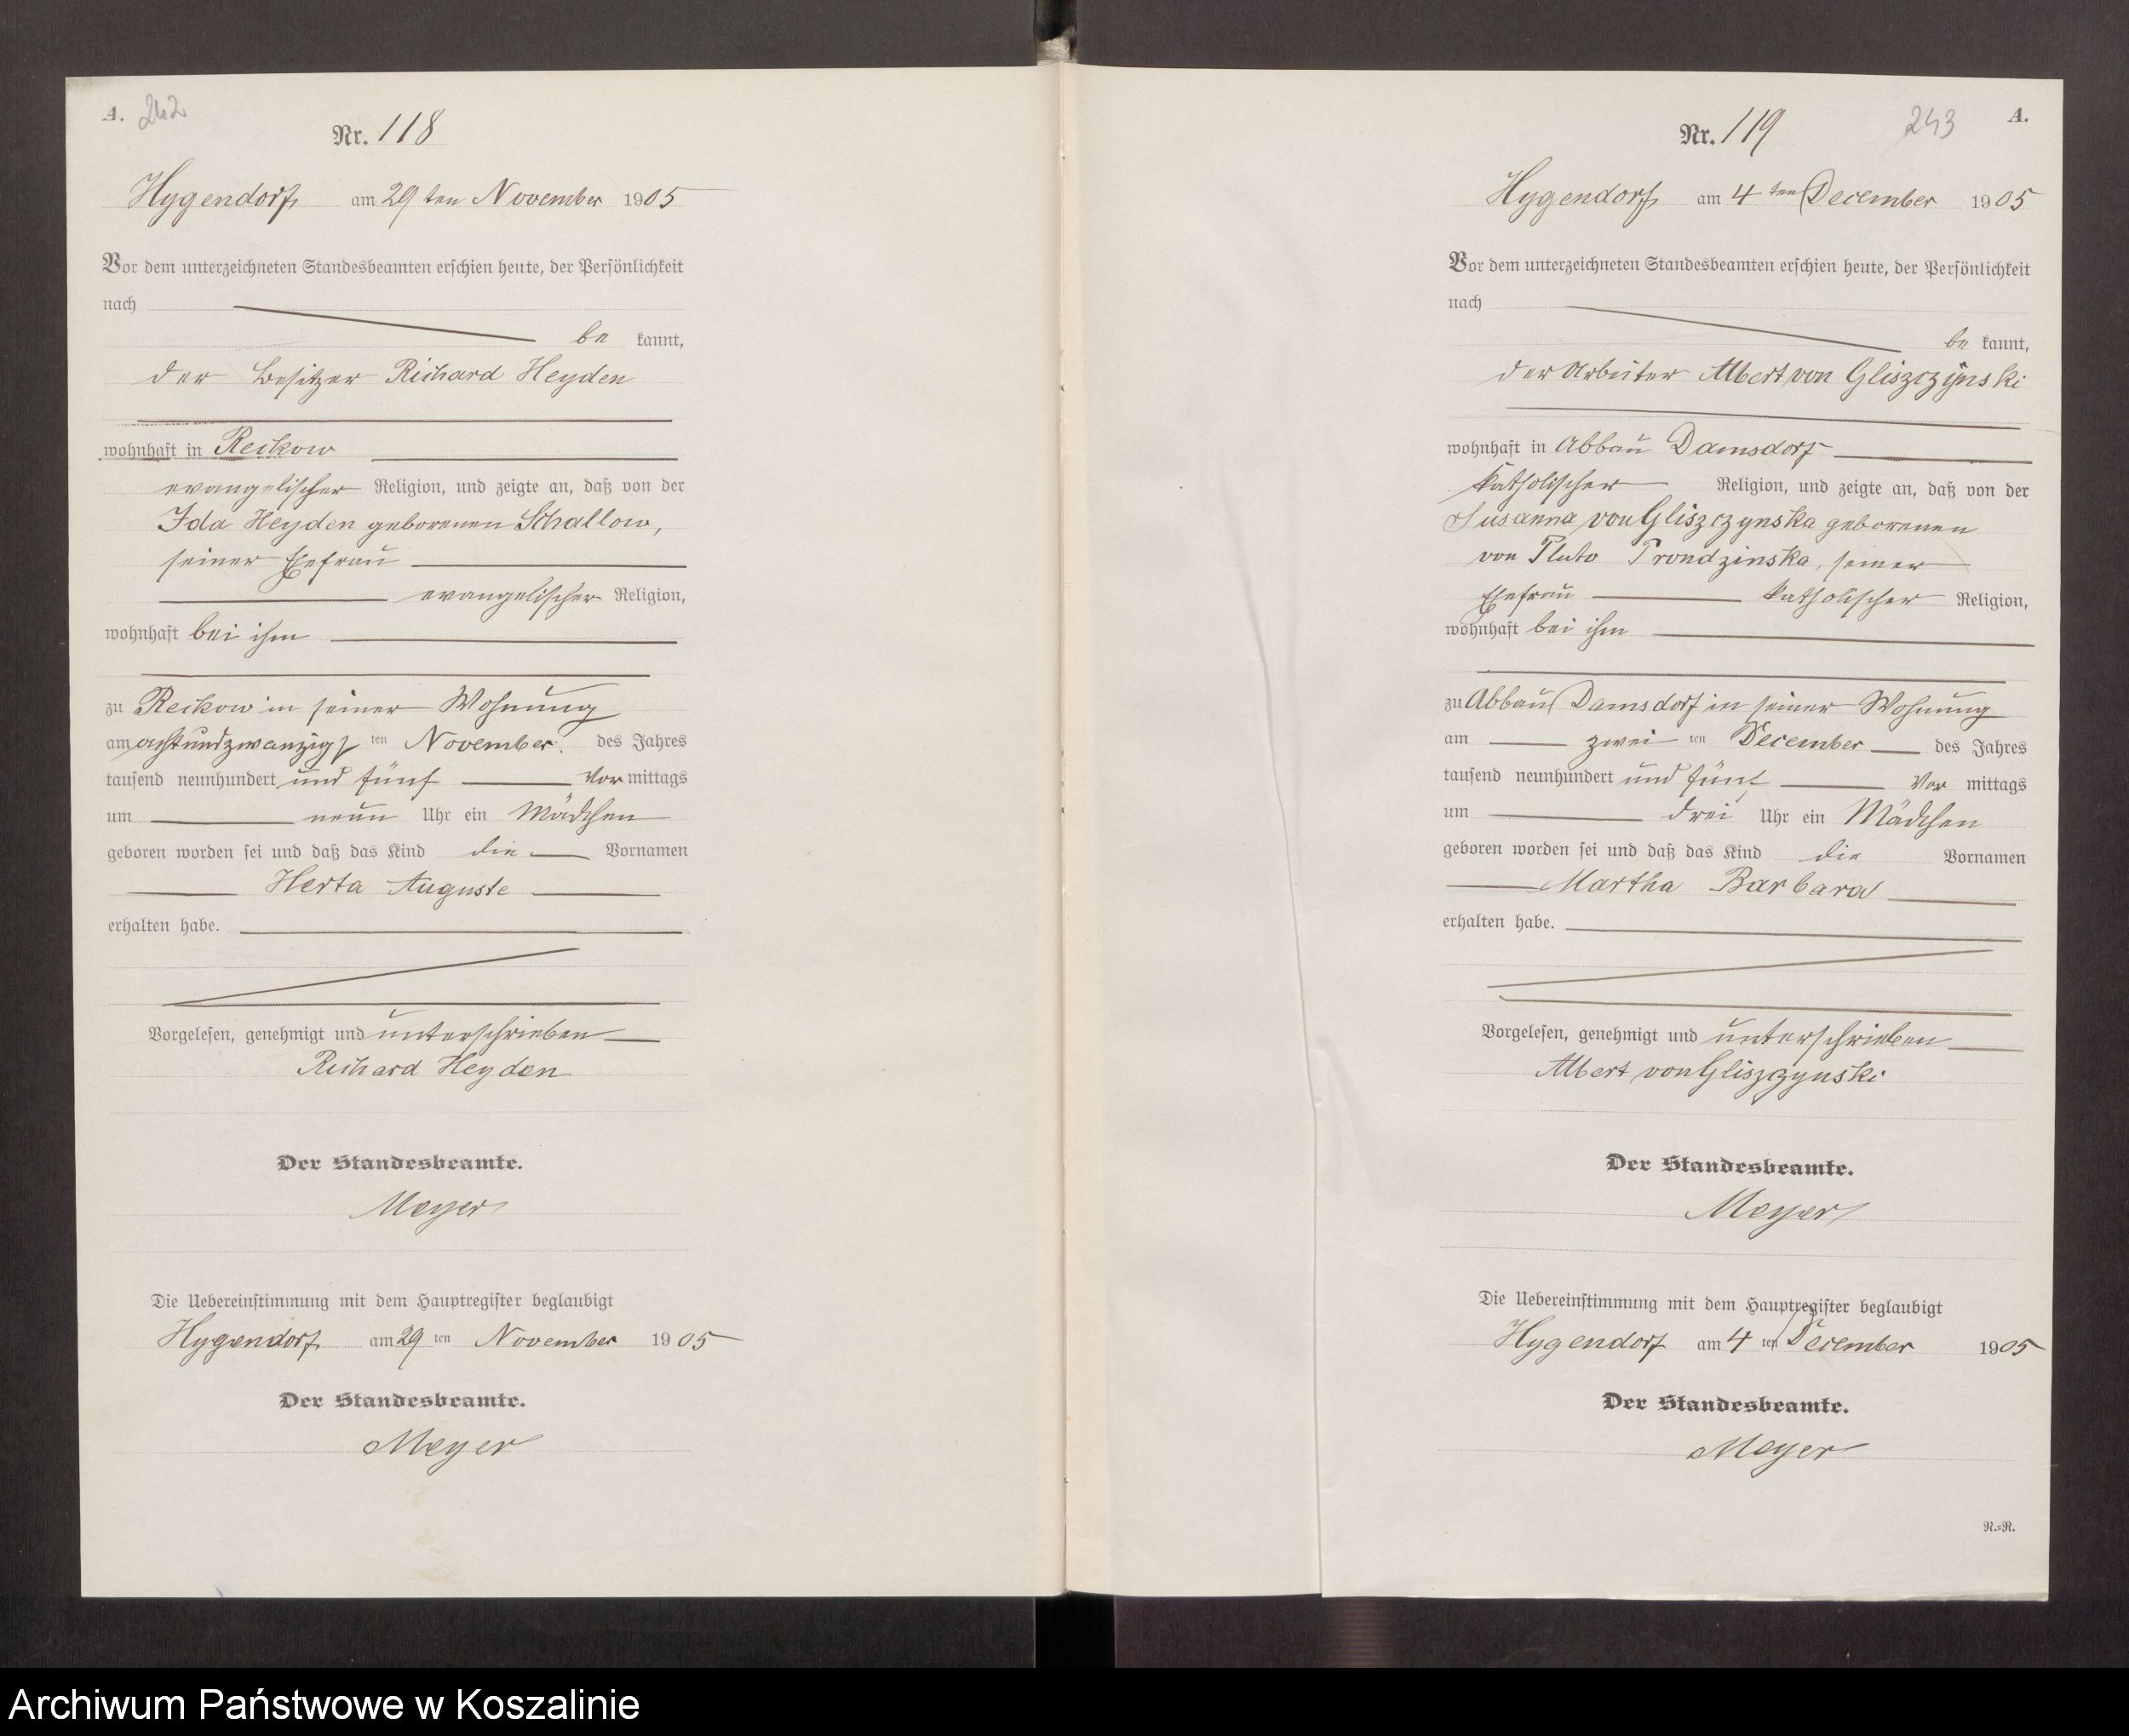 A. 242
Nr. 118
Hygendorf am 29 ten November 1905
Vor dem unterzeichneten Standesbeamten erschien heute, der Persönlichkeit
nach
be kannt,
der Besitzer Richard Heyden
wohnhaft in Reckow
evangelischer Religion, und zeigte an, daß von der
Ida Heyden geborenen Schallow,
seiner Ehefrau
evangelischer Religion,
wohnhaft bei ihm
zu Reckow in seiner Wohnung
am achtundzwanzigs ten November des Jahres
tausend neunhundert und fünf Vor mittags
um neun Uhr ein Mädchen
geboren worden sei und daß das Kind die Vornamen
Herta Auguste
erhalten habe.
Vorgelesen, genehmigt und unterschrieben
Richard Heyden
Der Standesbeamte.
Meyer
Die Uebereinstimmung mit dem Hauptregister beglaubigt
Hygendorf am 29 ten November 1905
Der Standesbeamte.
Meyer
243 A.
Nr. 119
Hygendorf am 4 ten December 1905
Vor dem unterzeichneten Standesbeamten erschien heute, der Persönlichkeit
nach
be kannt,
der Arbeiter Albert von Gliszczynski
wohnhaft in Abbau Damsdorf
katholischer Religion, und zeigte an, daß von der
Susanna von Gliszczynska geborenen
von Pluto Prondzinska, seiner
Ehefrau katholischer Religion,
wohnhaft bei ihm
zu Abbau Damsdorf in seiner Wohnung
am zwei ten December des Jahres
tausend neunhundert und fünf Vor mittags
um drei Uhr ein Mädchen
geboren worden sei und daß das Kind die Vornamen
Martha Barbara
erhalten habe.
Vorgelesen, genehmigt und unterschrieben
Albert von Gliszczynski
Der Standesbeamte.
Meyer
Die Uebereinstimmung mit dem Hauptregister beglaubigt
Hygendorf am 4 ten December 1905
Der Standesbeamte.
Meyer
R.=R.
Archiwum Państwowe w Koszalinie